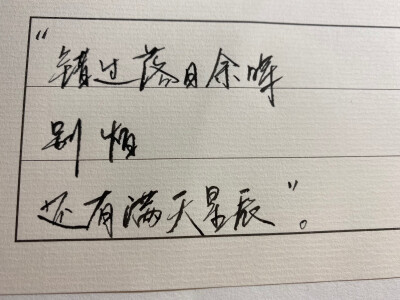 “错过落日余晖
别怕
还有满天星辰”。